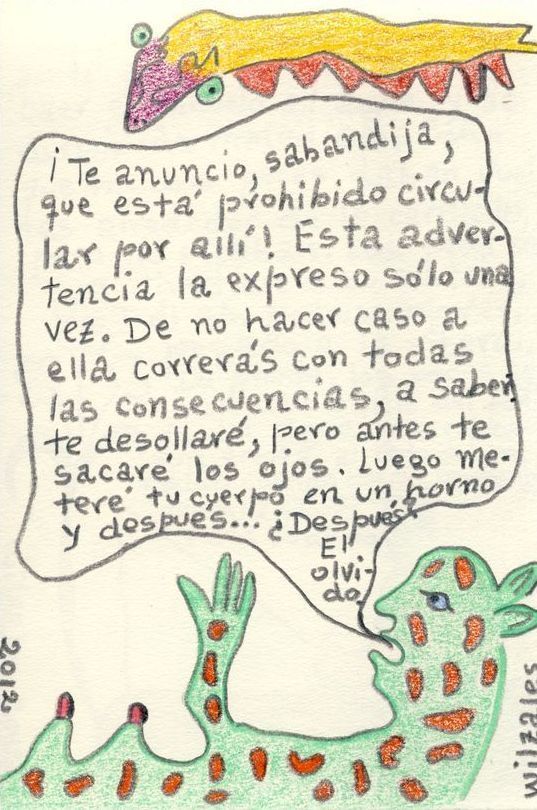 ¡Te anuncio, sabandija,
que está prohibido circu-
lar por allí! Esta adver-
tencia la expreso sólo una
vez. De no hacer caso a
ella correrás con todas
las consecuencias, a saber:
te desollaré, pero antes te
sacaré los ojos. Luego me-
teré tu cuerpo en un horno
y después... ¿Después?
El
olvi-
do.
2012
Wilzales